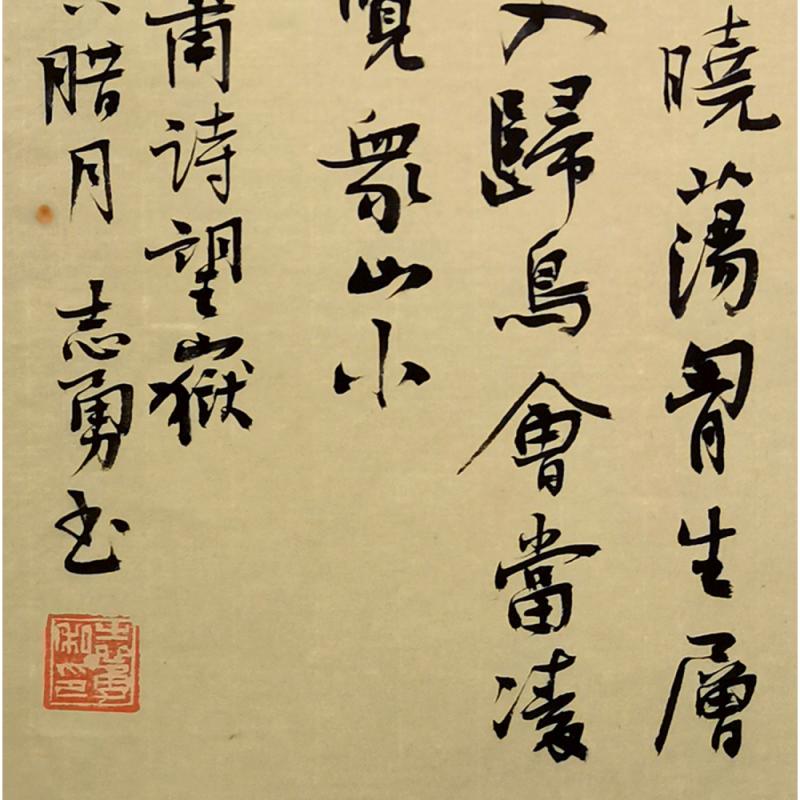 曉蕩胷生層
入歸鳥會當凌
覽眾山小
甫詩望嶽
腊月 志勇书